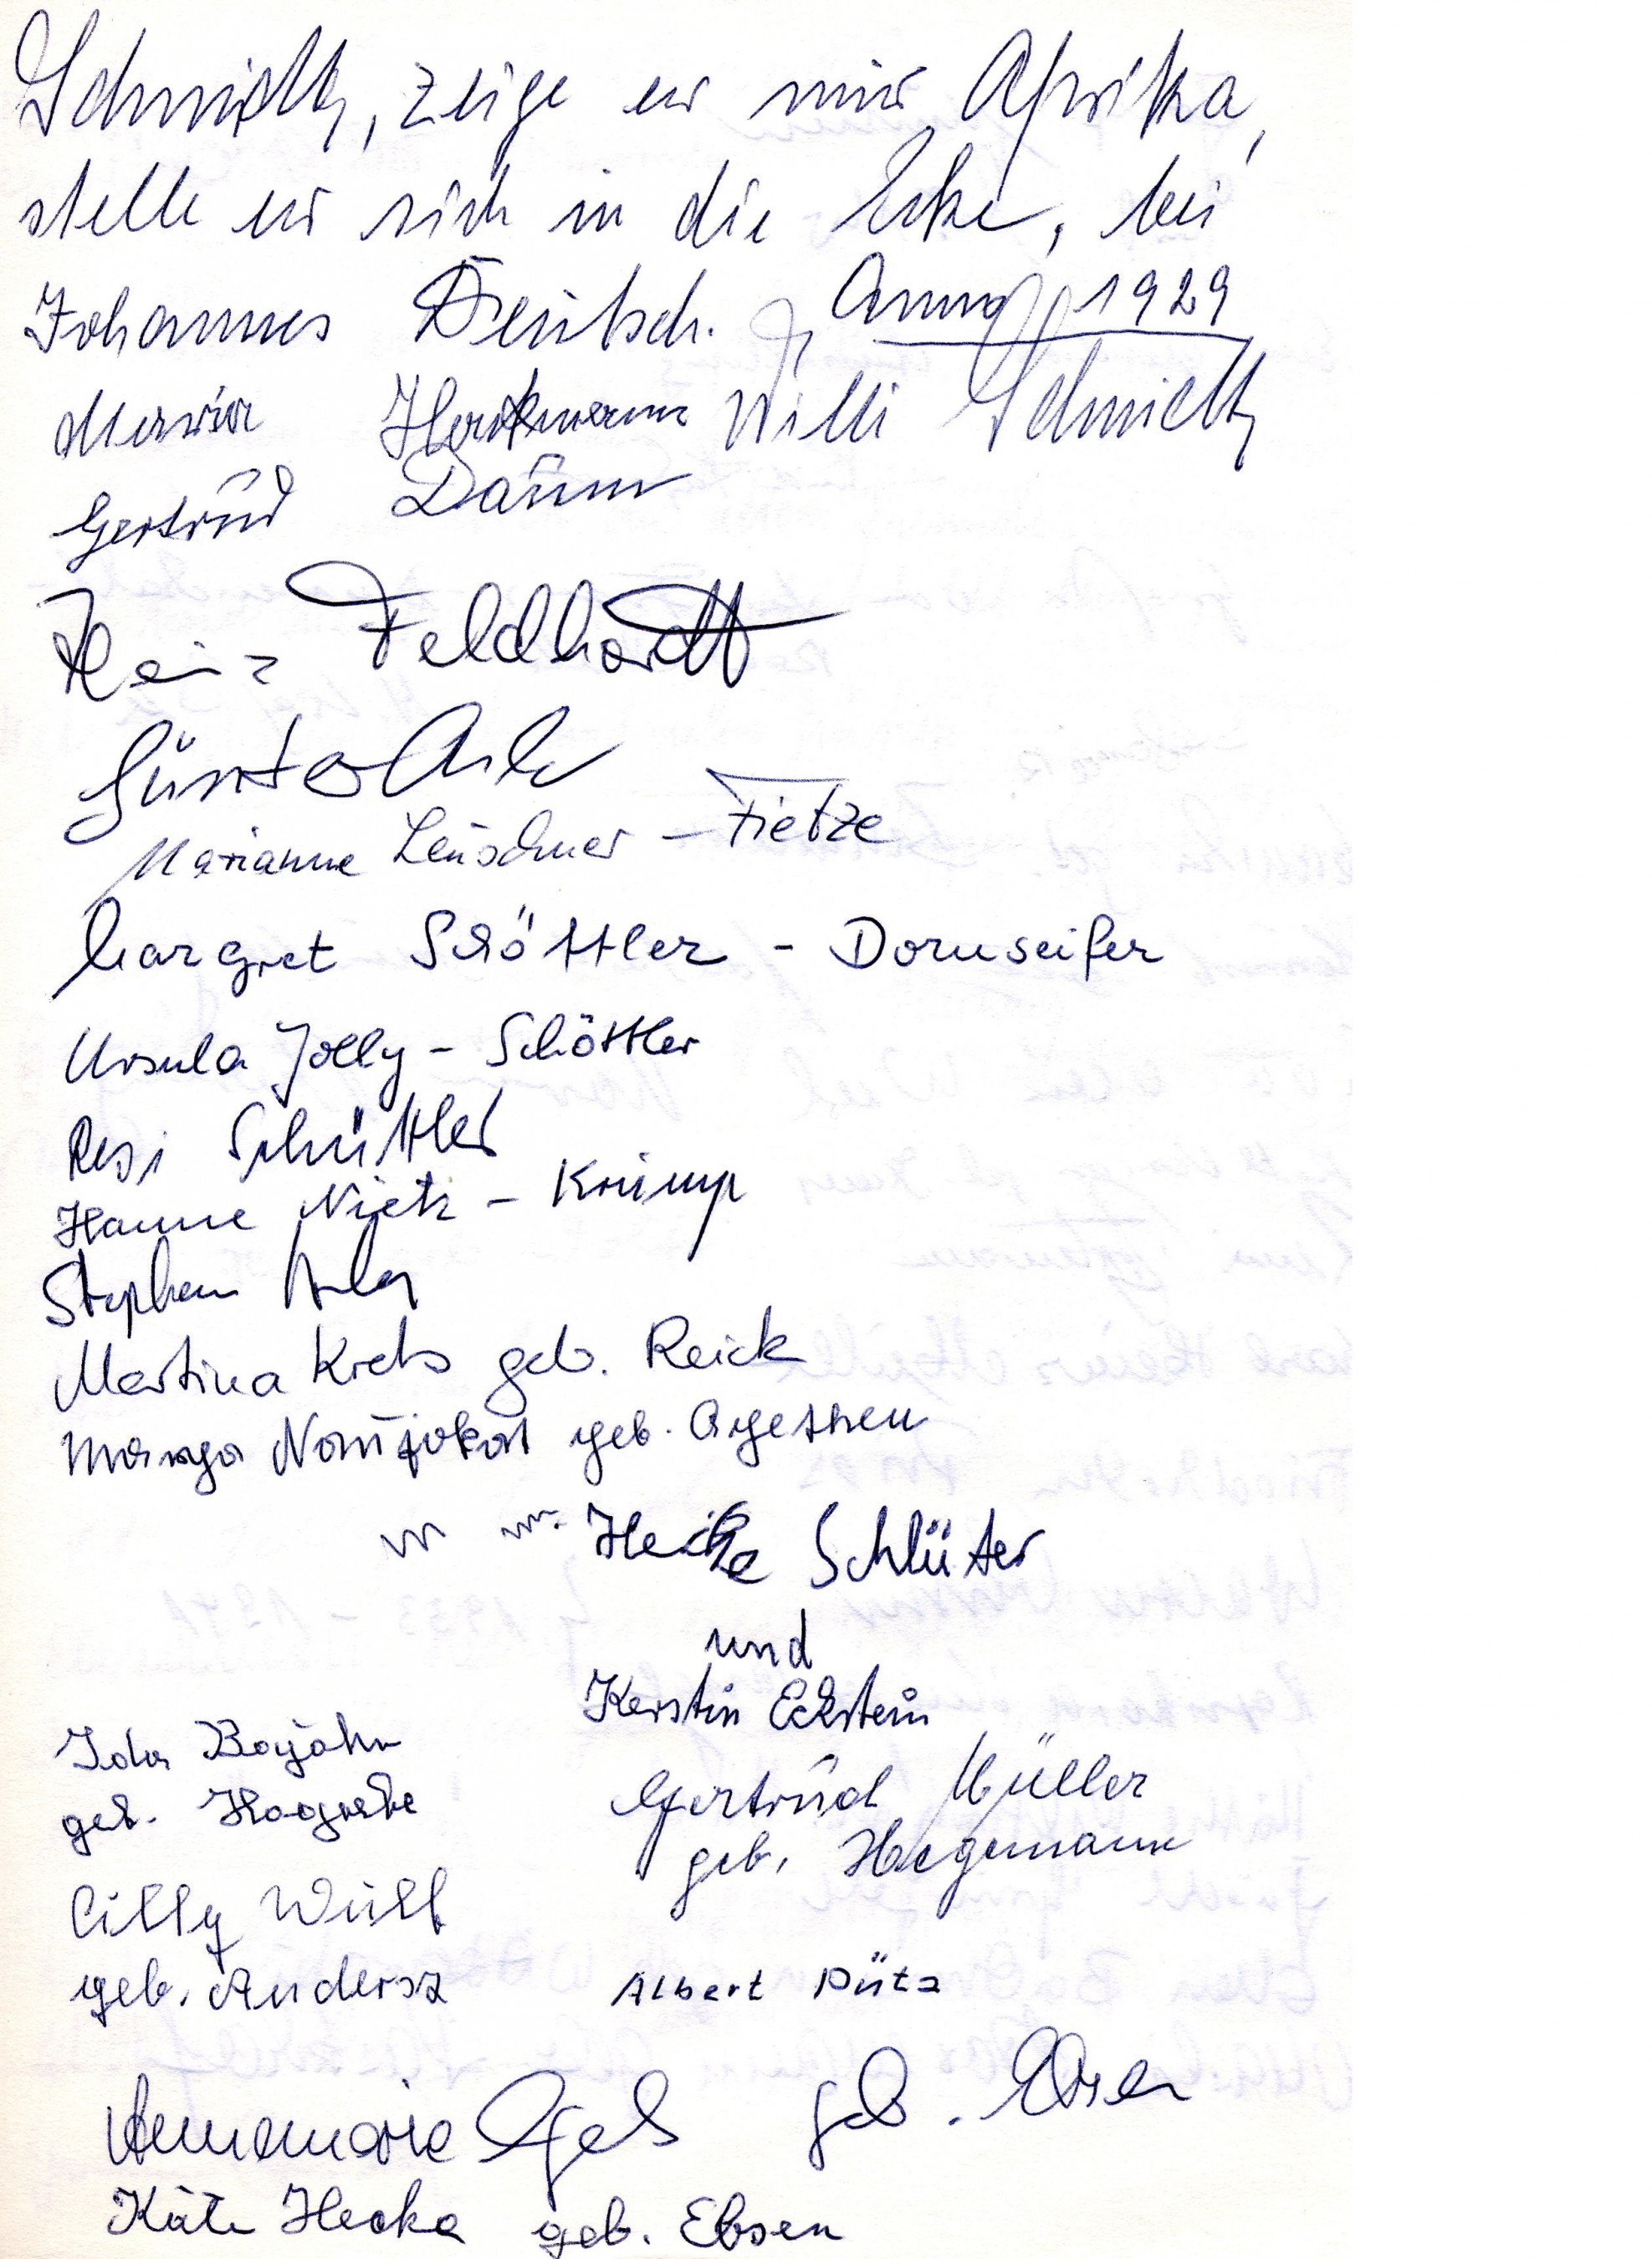 Schmidtz, zeige er mir Afrika,
stelle er sich in die Ecke, bei
Johannes Deutsch. Anno 1929
Maria Willi Schmidtz
Gertrud Daum
Heinz Feldhardt
Günter
Marianne Leuschner - Tietze
Margret Schöttler - Dornseifer
Ursula Jolly - Schöttler
Resi Schüttler
Hanne Nietz - Krump
Stephan
Martina Krebs geb. Reick
Marga geb.
Heike Schlüter
und
Kerstin Eckstein
Ida Bojahn
geb. Hogrebe
Gertrud Müller
geb. Hegemann
Cilly Wulf
geb. Andersz
Albert Pütz
Annemarie geb. Ebsen
Käte Hecke geb. Ebsen